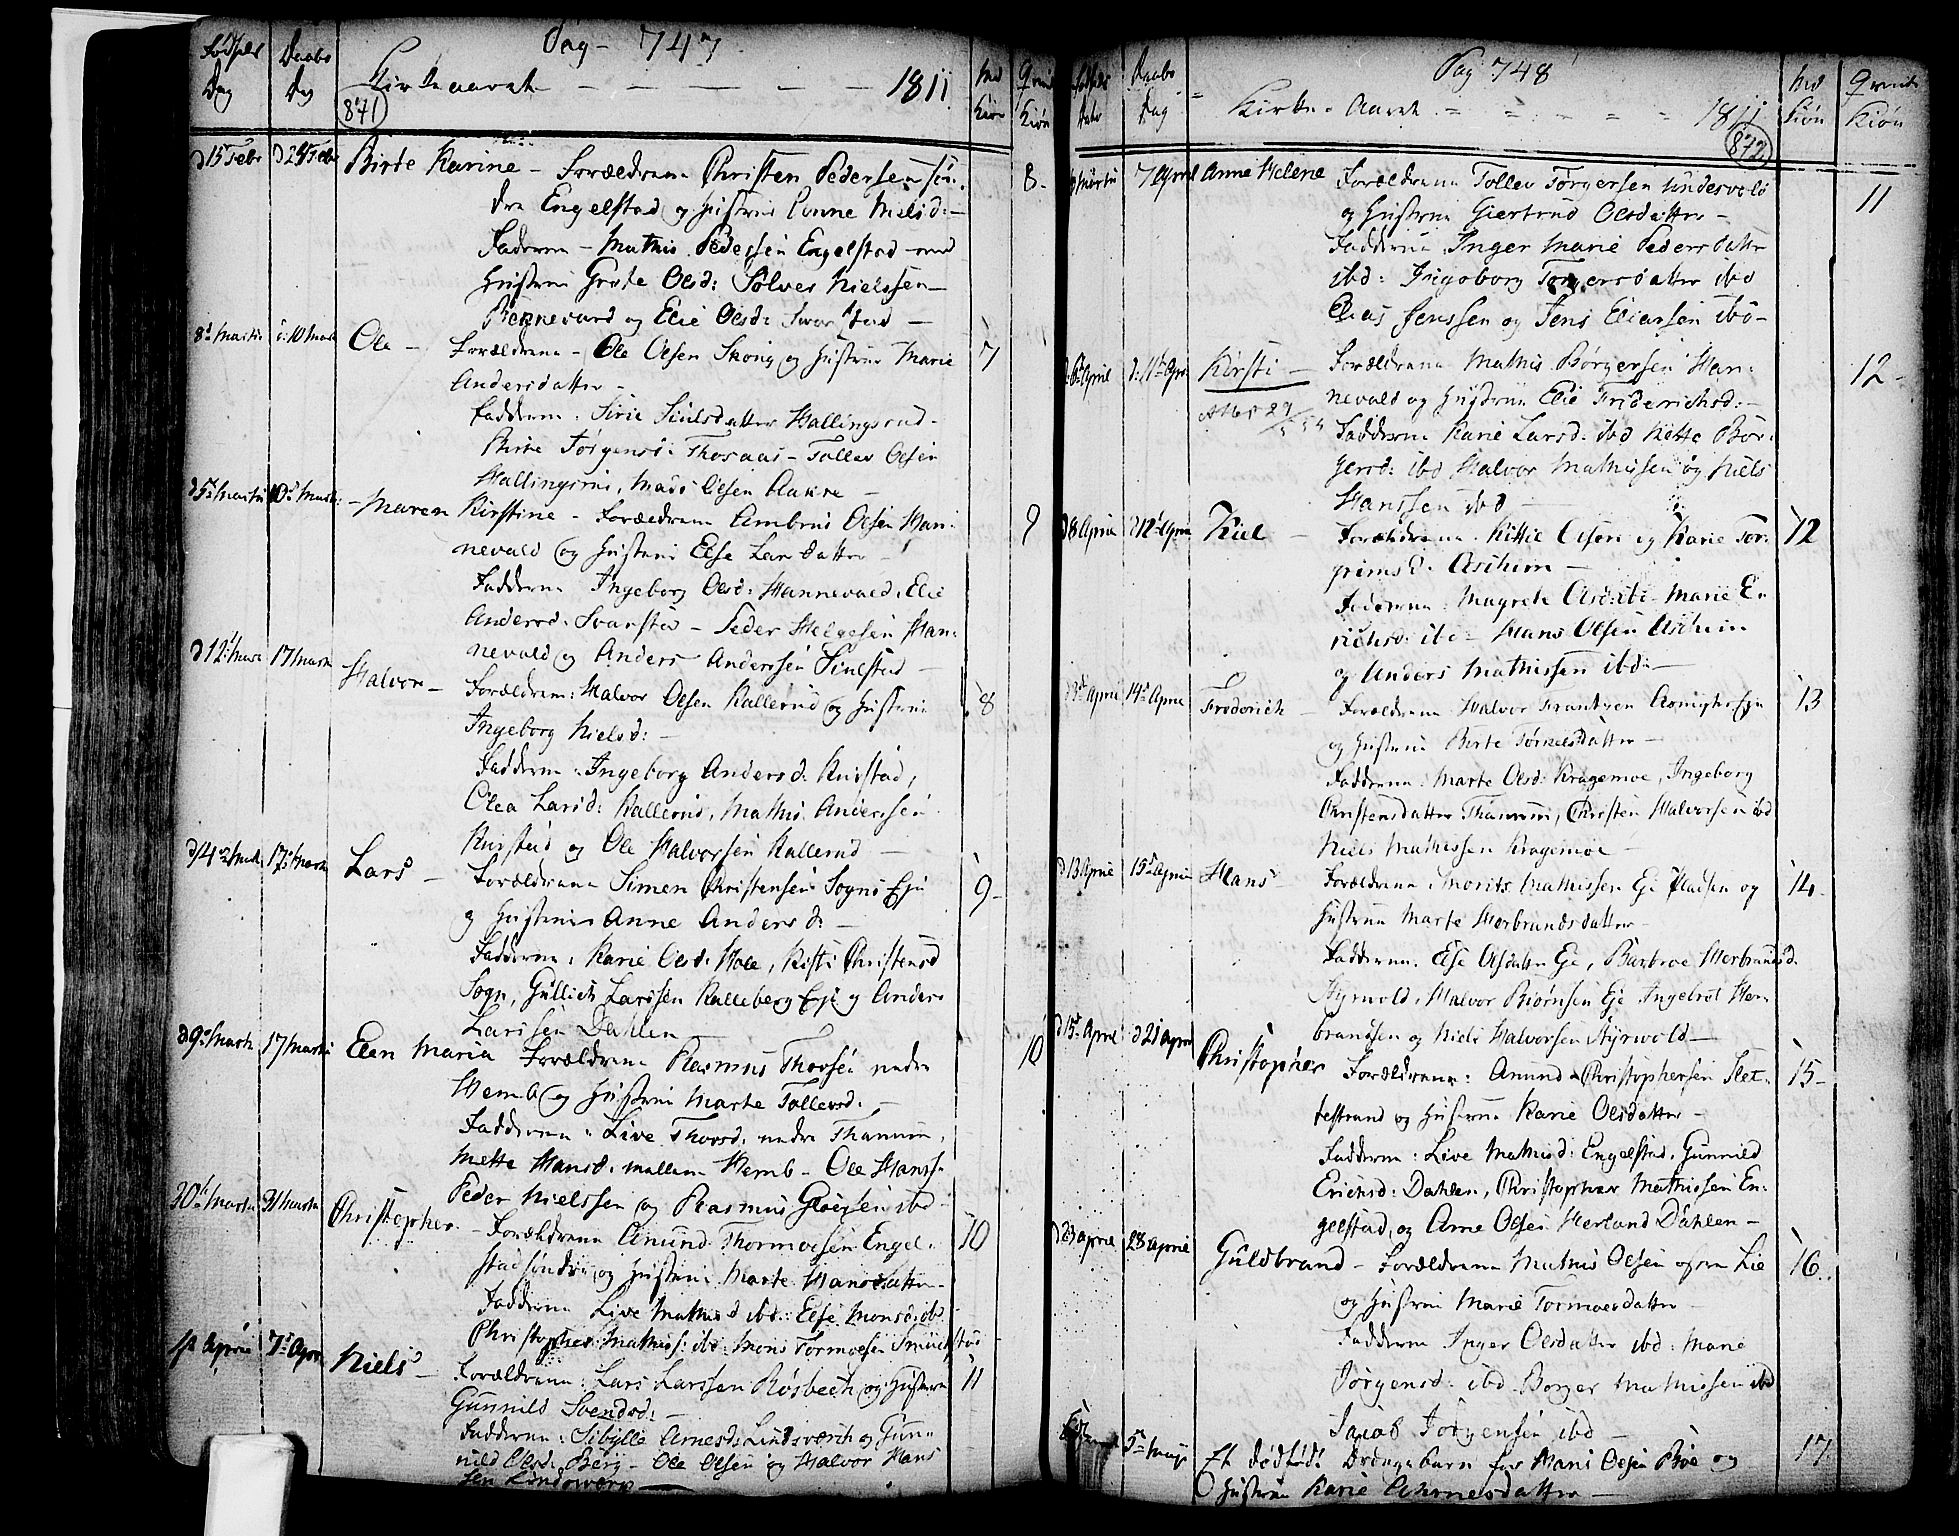 Pag- 747
Fødsels Dag
Daabs Dag
Kirkeaaret - - - - - 1811
Md Kiøn
Qvind Kiøn
871
d 15 Febr d 24 Febr Birte Karine - Forældrene Christen Pedersen 8.
dre Engelstad og Hustrue Anne Nielsd: -
Fadderne - Mathis Pedersen Engelstad med
Hustrue Grete Olsd: Sølver Nielssen -
Rennevard og Elie Olsd: Svarstad -
8d Martii d: 10 Marti Ole - Forældrene - Ole Olsen Skoug og Hustrue Marie 7
Andersdatter -
Fadderne: Sirie Sivlsdatter Hallingsrud -
Birte Jørgensd: Thoraas - Tollev Olsen
Hallingsrud, Mads Olsen Aakre -
d 5t Martii 10d Marti - Maren Kirstine - Forældrene Ambros Olsen Han- 9
nevald og Hustrue Else Larsdatter -
Fadderne Ingeborg Olsd: Hannevald, Elie
Andersd: Svarstad - Peder Helgesen Han-
nevald og Anders Anderssen Fivlstad -
d 12t Marti 17 Marti Halvor - Forældrene: Halvor Olsen Kallerud og Hustrue 8
Ingeborg Nielsd: -
Fadderne: Ingeborg Andersd: Knivstad,
Olea Larsd: Kallerud, Mathis Anderssen
Knivstad og Ole Halvorsen Kallerud -
d 4de Marti 17d Marti Lars - Forældrene Simen Christensen Sogns Eje 9-
og Hustrue Anne Andersd: -
Fadderne: Karie Olsd: Hole, Kisti Christensd
Sogn, Gullich Larssen Kalleberg Eje og Anders
Larssen Dahlen -
d 9d Marti 17 Marti Elen Maria Forældrene Rasmus Thovsen nedre 10
Hemb og Hustrue Marte Tollevsd: -
Fadderne: Live Thovsd: nedre Thanum,
Mette Hansd: mellem Hemb - Ole Hanss:
Peder Nielssen og Rasmus ibd -
30t Martii 31 Marti Christopher - Forældrene Amund Thormoesen Engel- 10
stad søndre og Hustrue Marte Hansdatter -
Fadderne Live Mathisd ibd: Else Monsd: ibd
Christopher Mathiss: ibd: Mons Tormoesen
1st Aprie 7d Apr Niels - Forældrene: Lars Larssen Røsbech og Hustrue 11
Gunnild Svendsd: -
Fadderne: Sibylle Arnesd: Lindsverch og Gun-
nild Olsd: Berg - Ole Olsen og Halvor Hans
sen Lindsverp -
Pag 748
Daabs Dag
Kirke Aaret - - - - - 1811
Md Kiøn
Qvinde Kiøn
872
Martii 7 April Anne Helene Forældrene Tollev Torgersen Undersvold 11
og Hustrue Giertrud Olsdatter -
Fadderne Inger Marie Pedersdatter
ibd: Ingeborg Torgersdatter ibd
Elias Jenssen og Jens Eliassen ibd -
d: 6t April d: 11t April Kirsti - Forældrene Mathis Børgersen Han- 12-
nevald og Hustrue Elie Friderichsd: -
Fadderne Karie Larsd: ibd Mette Bør-
gersd: ibd Halvor Mathissen og Niels
Hanssen ibd -
d 8 April d 12t April Kiel - Forældrene Kittil Olsen og Karie Tor- 12
grimsd: Asehim -
Fadderne: Magrete Olsd: ibd - Marie E-
richsd: ibd - Hans Olsen Aschim
og Anders Mathissen ibd: -
April 14d April Frederich - Forældrene Halvor Frantzen 13
og Hustrue Berte Tørkelsdatter -
Fadderne: Marte Olsd: Kragemoe, Ingeborg
Christensdatter Thanum, Christen Halvorsen ibd
Niels Mathissen Kragemoe -
d 13 April 15d April Hans - Forældrene Morits Mathissen Eje Pladsen og 14-
Hustrue Marte Herbrandsdatter -
Fadderne: Else Olsdatter Eje, Barbroe Herbrandsd.
Hyrvold, Halvor Biørnsen Eje Ingebret Her-
brandsen og Niels Halvorsen Hyrvold -
d 15t April d 21 April Christopher Forældrene: Amund Christophersen Slet- 15-
testrand og Hustrue Karie Olsdatter -
Fadderne: Live Mathisd: Engelstad, Gunnild
Erichsd: Dahlen, Christopher Mathissen En-
gelstad, og Arne Olsen Herland Dahlen -
d 23 April 28 April Guldbrand - Forældrene Mathis Olsen øfre Lie 16.
og Hustrue Marie Tormoesdatter -
Fadderne Inger Olsdatter ibd: Marie
Jørgensd: ibd Børger Mathissen ibd
Jacob Jørgensen ibd -
5te Maji Et dødfødt Drengebarn for Hans Olsen Bøe og 17.
Hustrue Karie Ahrnesdatter -